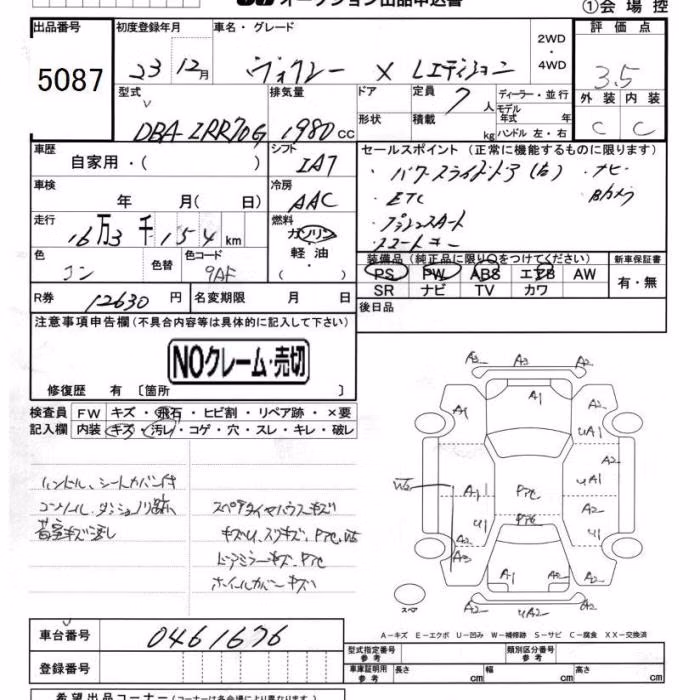 オークション出品申込書
①会場控
出品番号 初度登録年月 車名・グレード 2WD ・ 4WD 評価点
5087 23 12月 ヴォクシー X Lエディション 3.5
型式 排気量 ドア 定員 7人 ディーラー・並行 外装 内装
DBA ZRR70G 1980cc 形状 積載 kg モデル年式 年 ハンドル 左・右 C C
車歴 自家用・( ) シフト IA7 セールスポイント (正常に機能するものに限ります)
・パワースライドドア(右) ・ナビ
車検 年 月( 日) 冷房 AAC ・ETC ・Bカメラ
・プッシュスタート
走行 16万3千154km 燃料 ガソリン 軽油 ( ) ・スマートキー
色 コン 色替 色コード 9AF
装備品 (純正品に限り○をつけてください) 新車保証書
PS PW ABS エアB AW 有・無
SR ナビ TV カワ
R券 12630円 名変期限 月 日 後日品
注意事項申告欄(不具合内容等は具体的に記入して下さい)
NOクレーム・売切
修復歴 有 〔箇所 〕
検査員 FW キズ・飛石・ヒビ割・リペア跡・×要
記入欄 内装 キズ・汚レ・コゲ・穴・スレ・キレ・破レ
ハンドル、シートカバー付
コンソール、ダッシュノリ跡、
荷室キズ汚し
スペアタイヤハウスキズ
キズU、スリキズ、PTC、WS
ドアミラーキズ、PTC
ホイールカバーキズ
A2 A3 A2
A1 A1 A2
UA1
W2 A1 PTC UA1
A2
U1 PTC U1
A2
A3 A1 A2 A2
スペア A2 UA2 A2
A−キズ E−エクボ U−凹み W−補修跡 S−サビ C−腐食 XX−交換済
車台番号 0461676
型式指定番号 参考 類別区分番号 参考
登録番号 車庫証明用 参考 長さ cm 幅 cm 高さ cm
希望出品コーナー(コーナーは各会場により異なります)